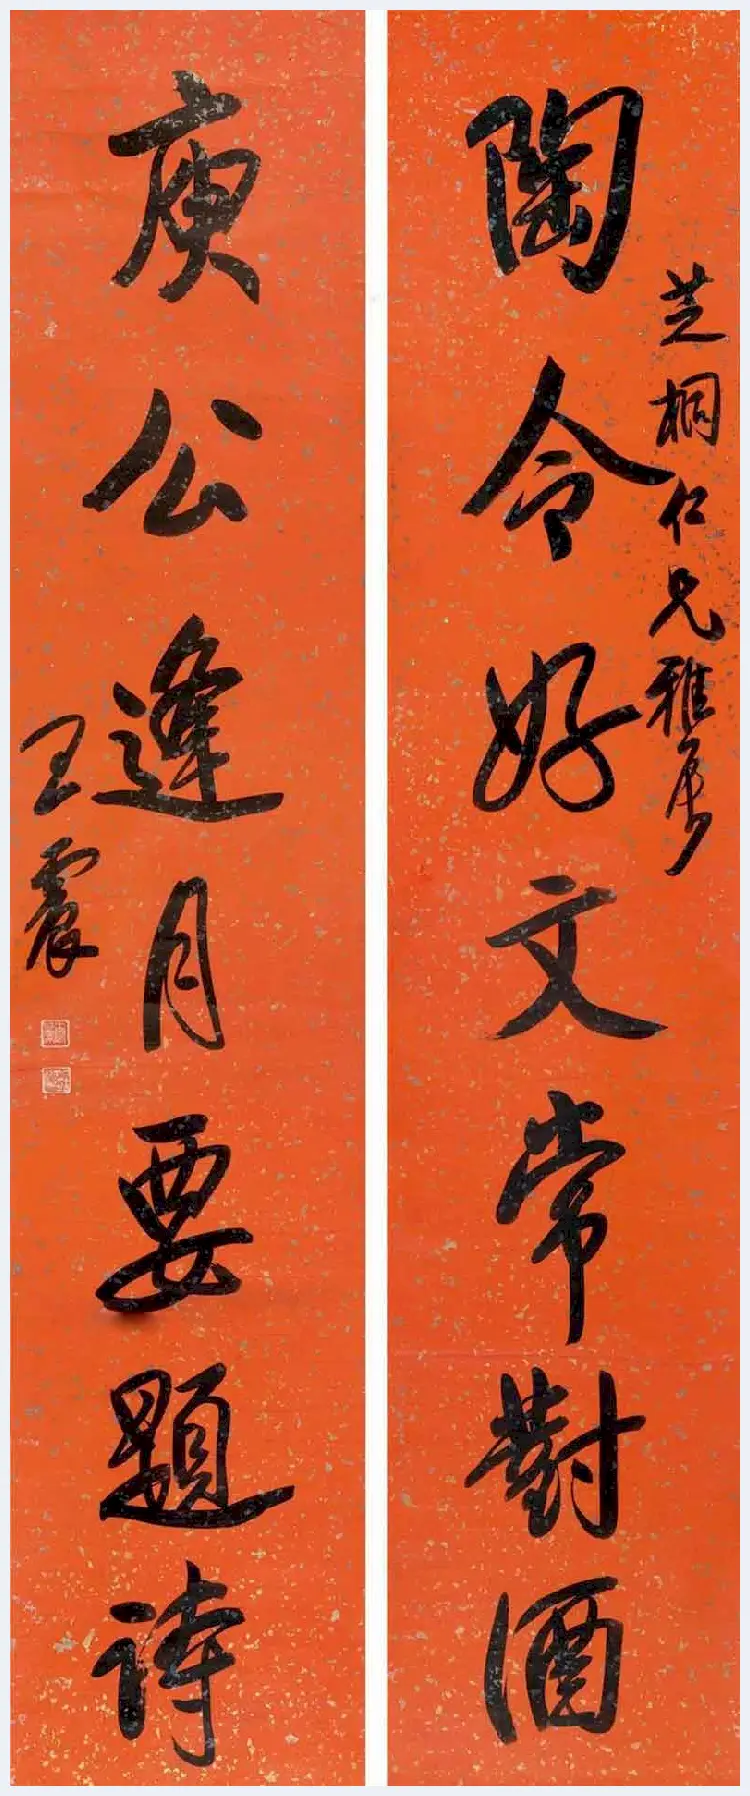 陶令好文常對酒
芝桐仁兄雅屬
庾公逢月要題詩
王震